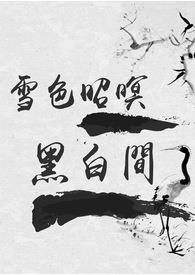 雪色昭暝
黑白間